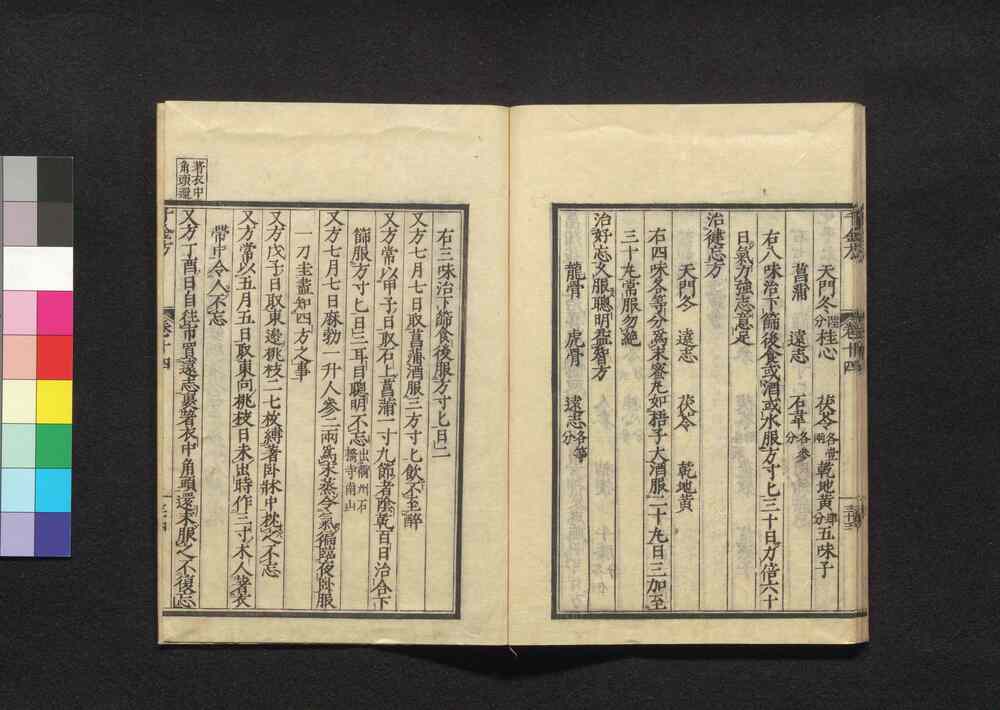 天門冬 陸分 桂心 茯苓 各壹兩 乾地黄 肆分 五味子
菖蒲 遠志 石韋 各參分
右八味治下篩後食或酒或水服方寸匕三十日力倍六十
日氣力強志意足
治健忘方
天門冬 遠志 茯苓 乾地黄
右四味各等分爲末蜜丸如梧子大酒服二十丸日三加至
三十丸常服勿絶
治好忘久服聰明益智方
龍骨 虎骨 遠志 各等分
右三味治下篩食後服方寸匕日二
又方七月七日取菖蒲酒服三方寸匕飲不至醉
又方常以甲子日取石上菖蒲一寸九節者陰乾百日治合下
篩服方寸匕日三耳目聰明不忘 出衢州石橋寺南山
又方七月七日麻勃一升人參二兩爲末蒸令氣徧臨夜卧服
一刀圭盡知四方之事
又方戊子日取東邊桃枝二七枚縛著卧牀中枕之不忘
又方常以五月五日取東向桃枝日未出時作三寸木人著衣
帶中令人不忘
又方丁酉日自往市買遠志裹著衣中角頭還末服之不復忘
著衣中
角頭還